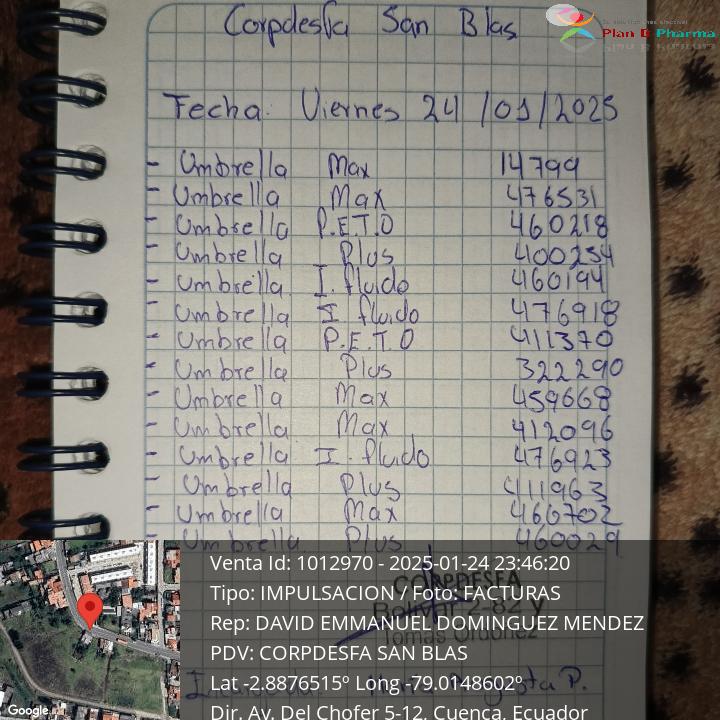 Corpdesfa San Blas
Plan B Pharma
Fecha: Viernes 24/01/2025
- Umbrella Max 14799
- Umbrella Max 476531
- Umbrella P.E.T.O 460218
- Umbrella Plus 400254
- Umbrella I. fluido 460194
- Umbrella I fluido 476918
- Umbrella P.E.T.O 411370
- Umbrella Plus 322290
- Umbrella Max 459668
- Umbrella Max 412096
- Umbrella I. fluido 476923
- Umbrella Plus 411963
- Umbrella Max 460702
- Umbrella Plus 460029
CORPDESFA
Bolívar 2-82 y
Tomás Ordóñez
Venta Id: 1012970 - 2025-01-24 23:46:20
Tipo: IMPULSACION / Foto: FACTURAS
Rep: DAVID EMMANUEL DOMINGUEZ MENDEZ
PDV: CORPDESFA SAN BLAS
Lat -2.8876515º Long -79.0148602º
Dir. Av. Del Chofer 5-12, Cuenca, Ecuador
Google